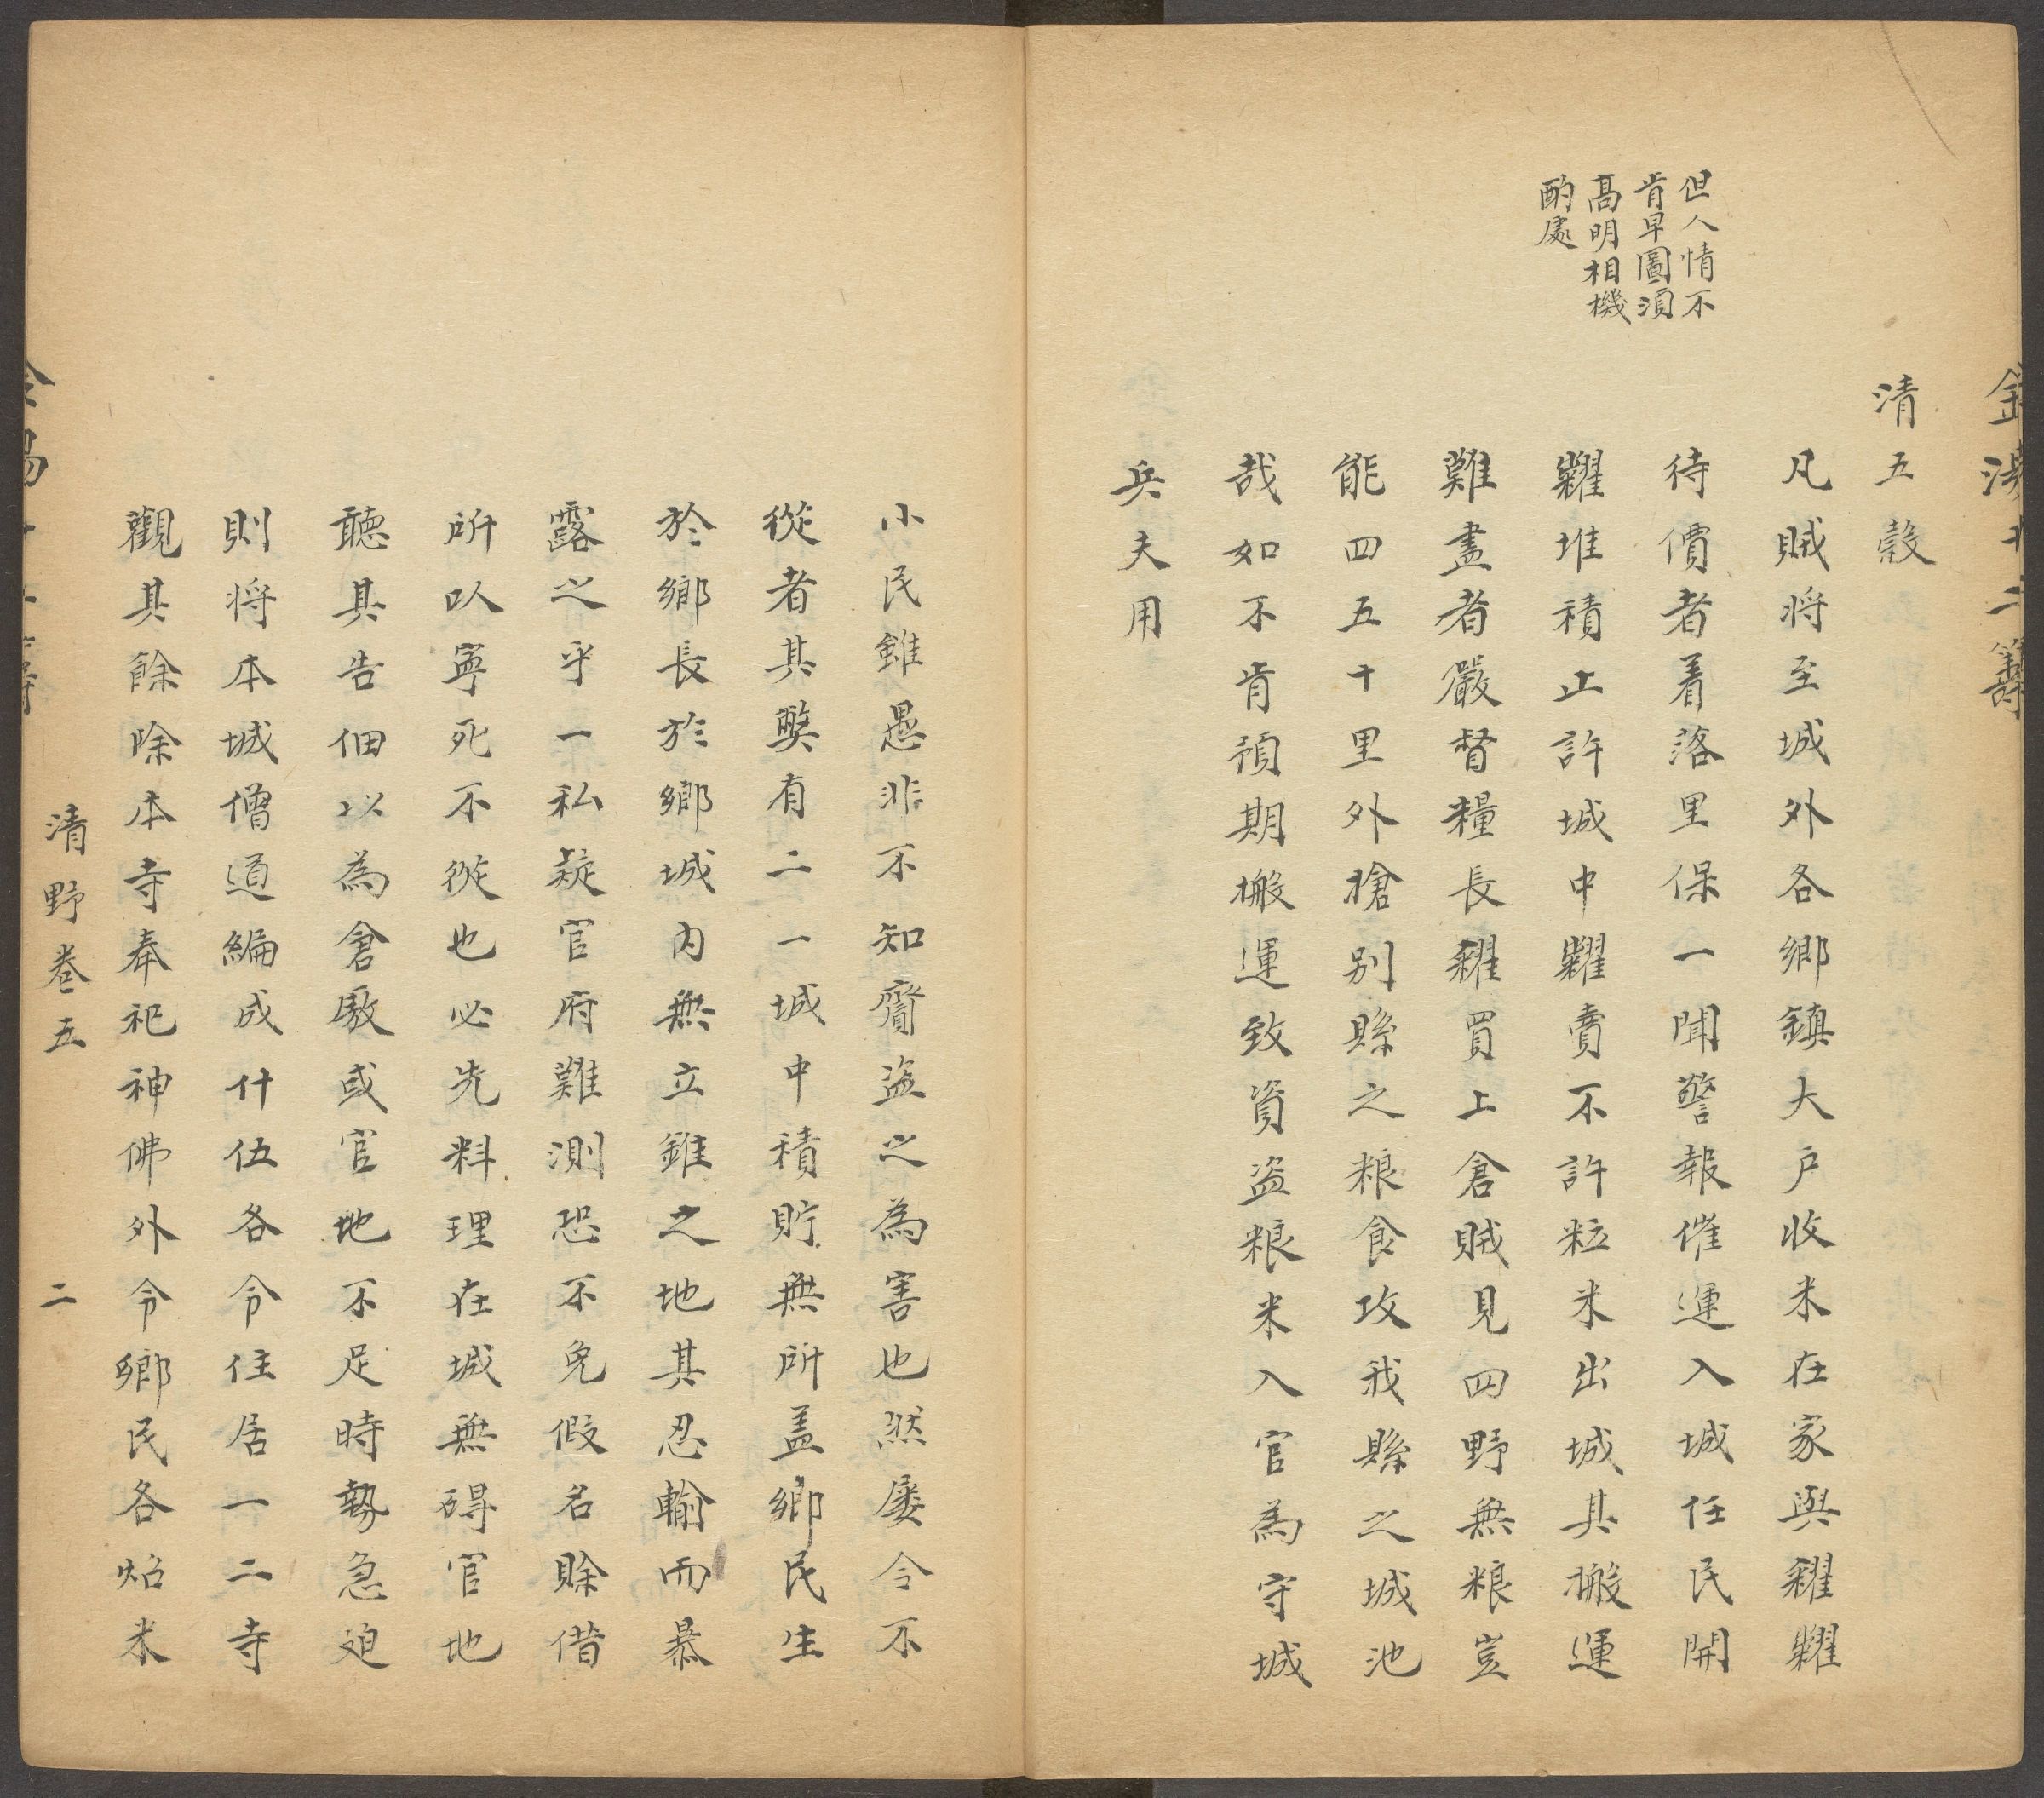 金湯十二籌
清五穀
但人情不
肯早圖須
高明相機
酌處
凡賊将至城外各鄉鎮大户收米在家與糴糶
待價者着落里保一聞警報催運入城任民開
糶堆積止許城中糶賣不許粒米出城其搬運
難盡者嚴督糧長糴買上倉賊見四野無粮豈
能四五十里外搶别縣之粮食攻我縣之城池
哉如不肯預期搬運致資盗粮米入官為守城
兵夫用
小民雖愚非不知齎盗之為害也然屡令不
從者其獘有二一城中積貯無所盖鄉民生
於鄉長於鄉城内無立錐之地其忍輸而暴
露之乎一私疑官府難測恐不免假名賒借
所以寧死不從也必先料理在城無碍官地
聽其告佃以為倉厫或官地不足時勢急廹
則将本城僧道編成什伍各令住居一二寺
觀其餘除本寺奉祀神佛外令鄉民各炤米
清野卷五
二